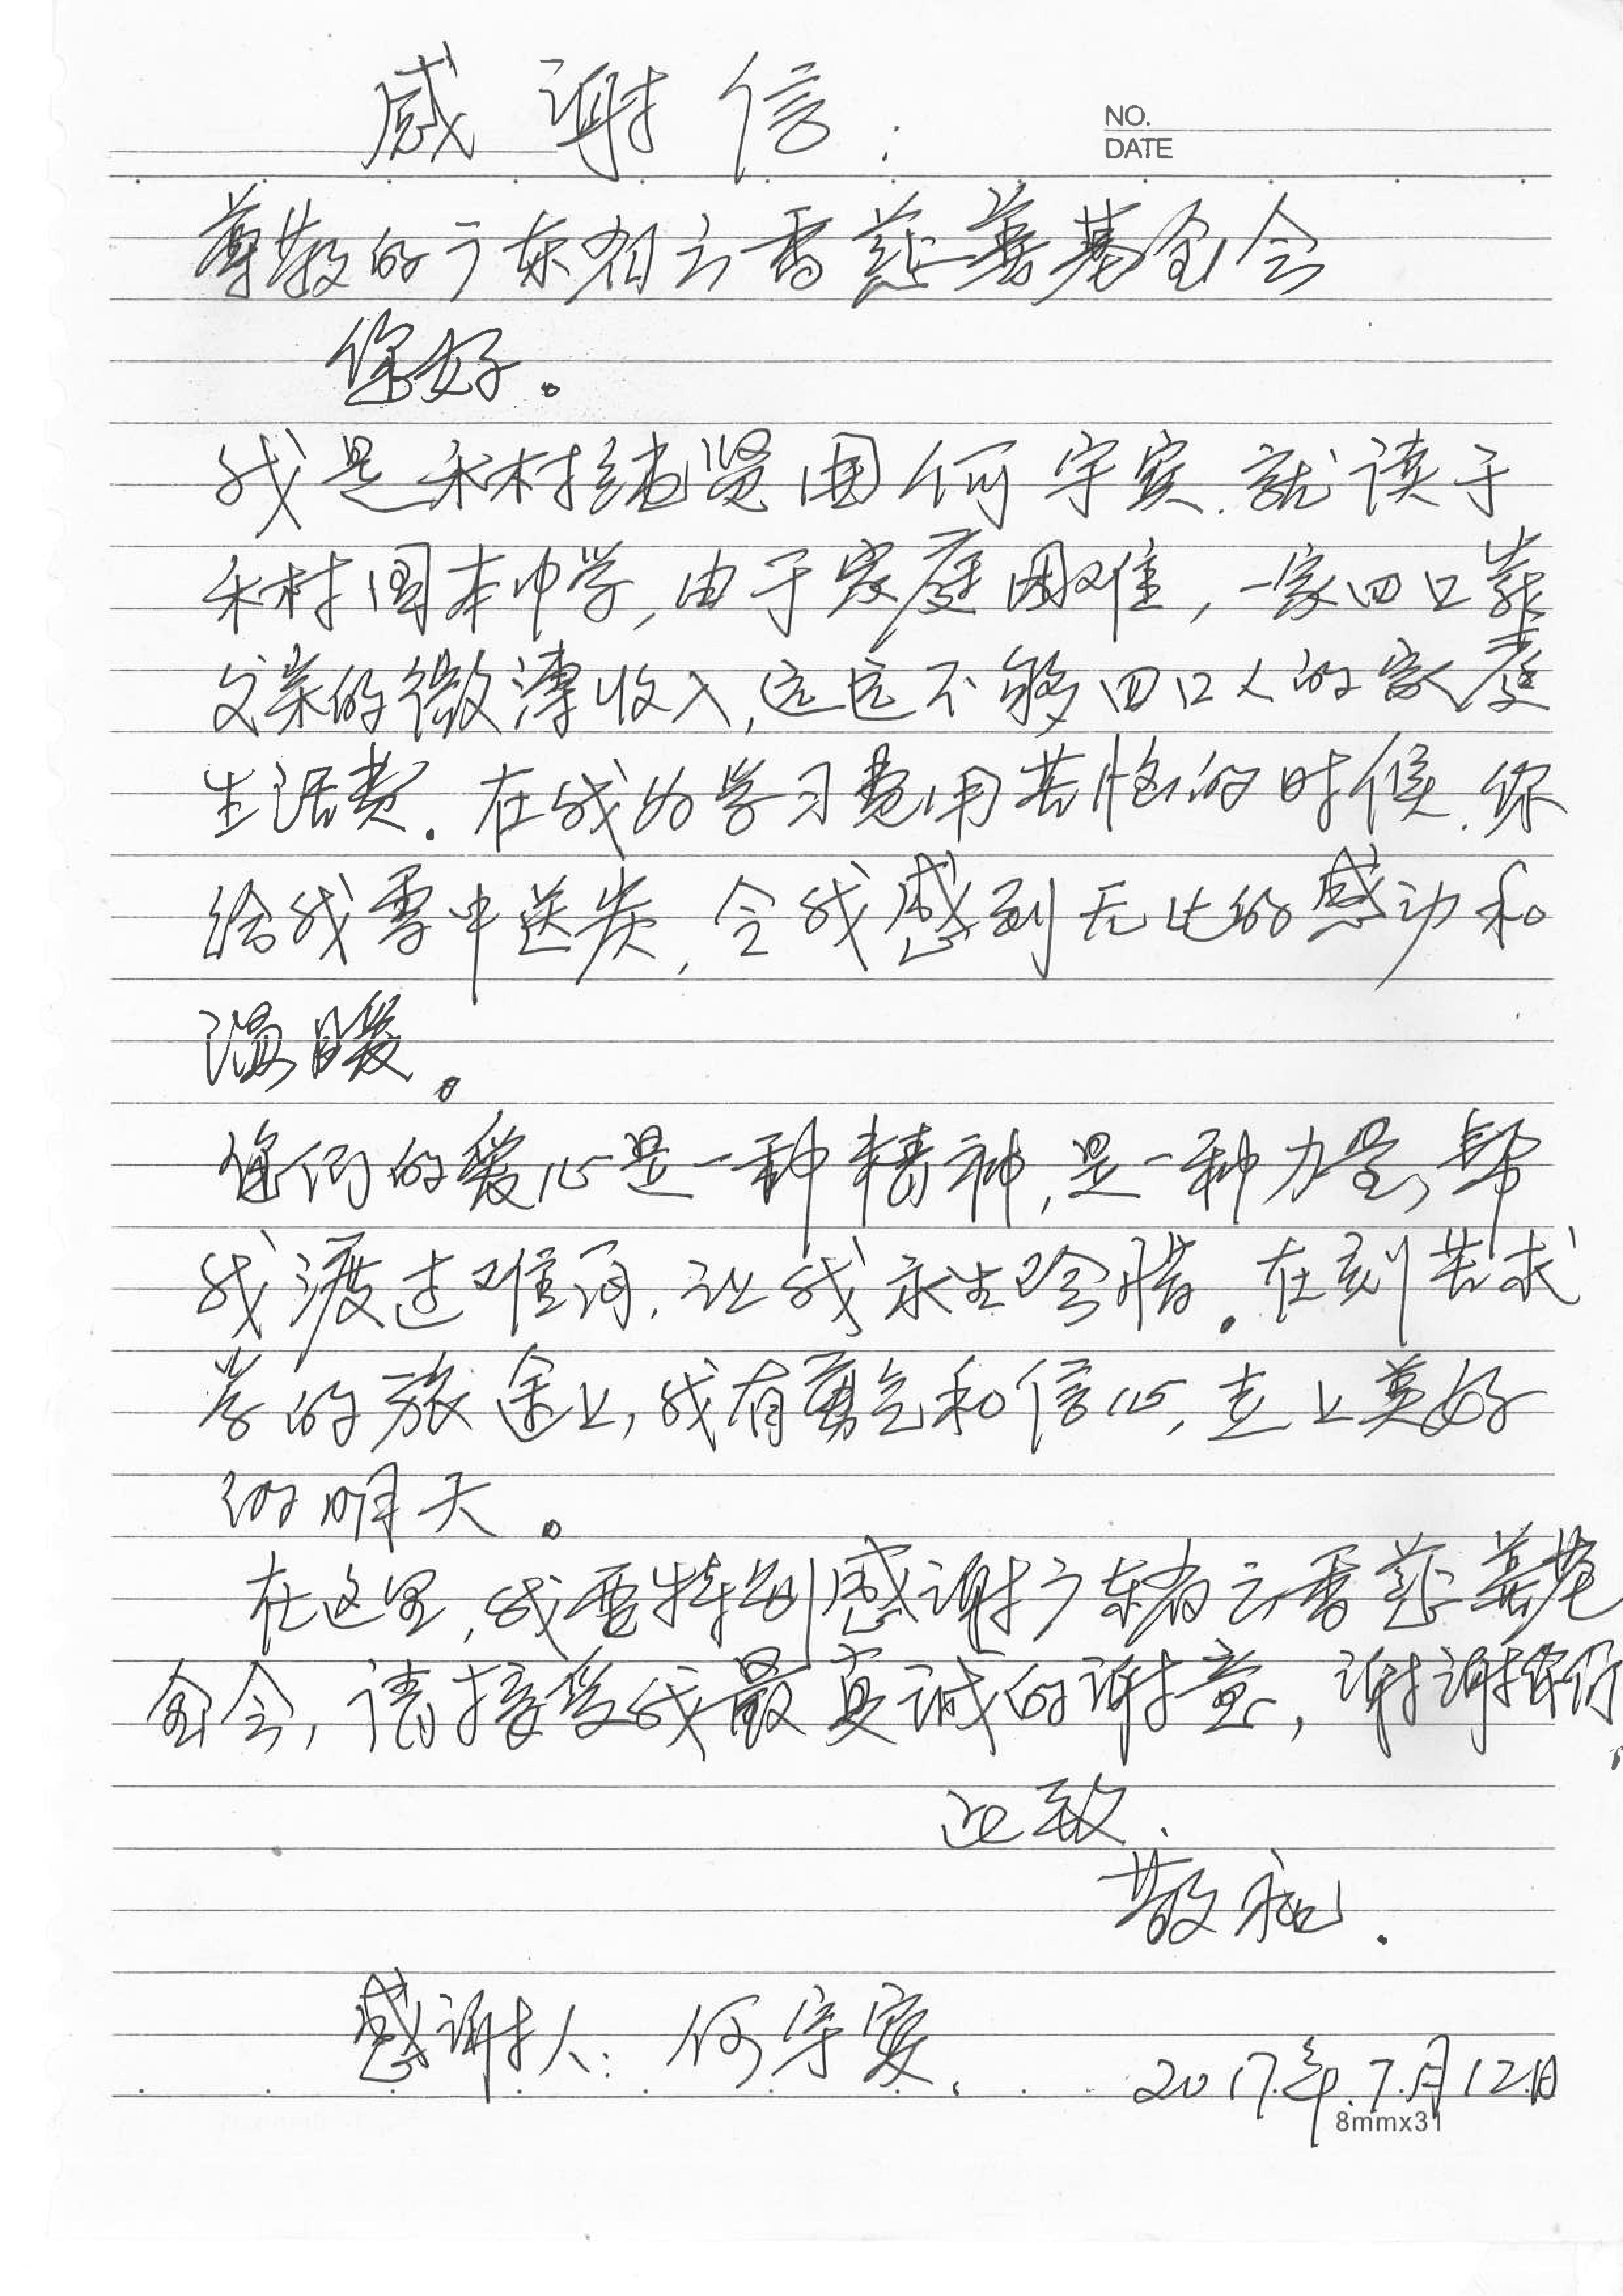 感谢信.
NO.
DATE
尊敬的广东省云香慈善基金会
您好。
我是禾村贤围何宇宾.就读于
禾村固本中学,由于家庭困难,一家四口靠
父亲的微薄收入,远远不够四口人的家庭
生活费.在我为学习费用苦恼的时候.你
给我雪中送炭,令我感到无比的感动和
温暖。
您们的爱心是一种精神,是一种力量,帮
我渡过难关,让我永生珍惜。在刻苦求
学的旅途上,我有勇气和信心,走上美好
的明天。
在这里,我要特别感谢广东省云香慈善基
金会,请接受我最真诚的谢意,谢谢你们
此致.
敬礼.
感谢人:何宇宾.
2017.年.7.月12.日
8mmx31